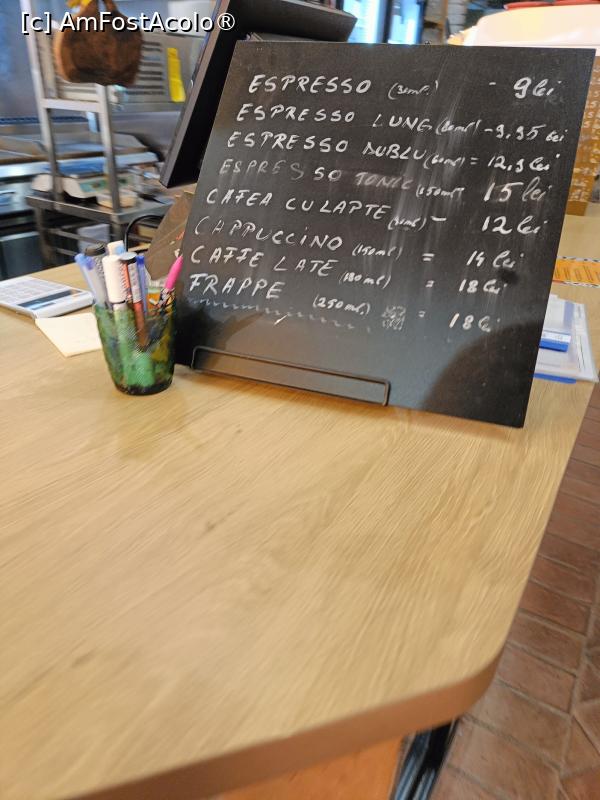 [c] AmFostAcolo®
ESPRESSO (30ml.) - 9 lei
ESPRESSO LUNG (80ml) - 9,95 lei
ESPRESSO DUBLU (60ml) = 12,9 lei
ESPRESSO TONIC (150ml) 15 lei
CAFEA CU LAPTE (90ml) - 12 lei
CAPPUCCINO (150ml) = 14 lei
CAFFE LATE (180ml) = 18 lei
FRAPPE (250ml) = 18 lei